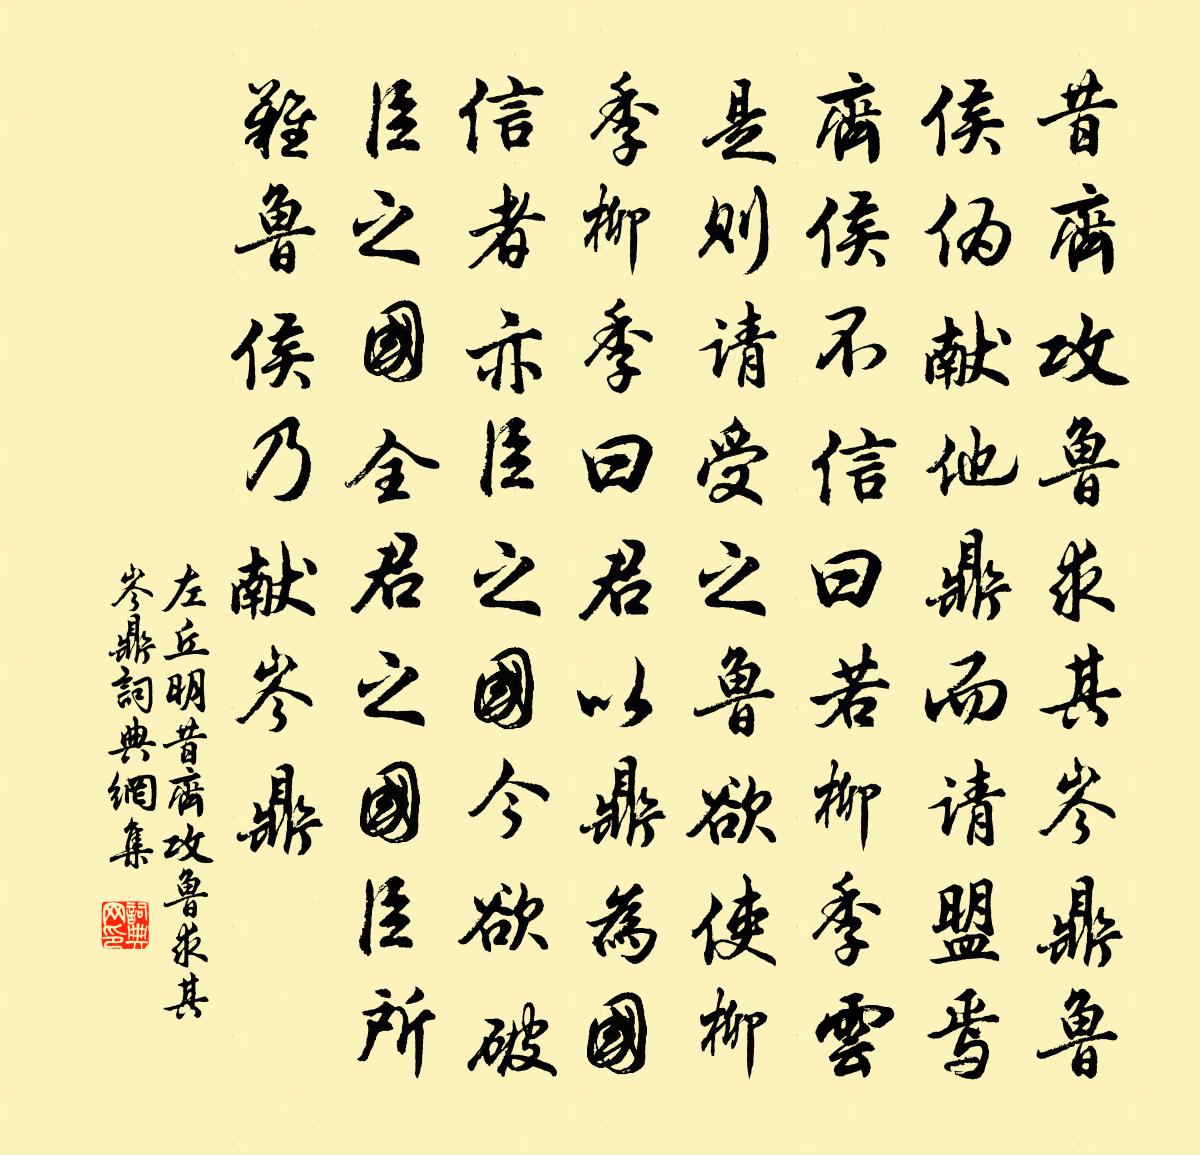 昔齊攻魯求其岑鼎魯
侯伪献他鼎而请盟焉
齊侯不信曰若柳季雲
是则请受之魯欲使柳
季柳季曰君以鼎為國
信者亦臣之國今欲破
臣之國全君之國臣所
難魯侯乃献岑鼎
左丘明昔齊攻魯求其
岑鼎詞典網集
詞典网印